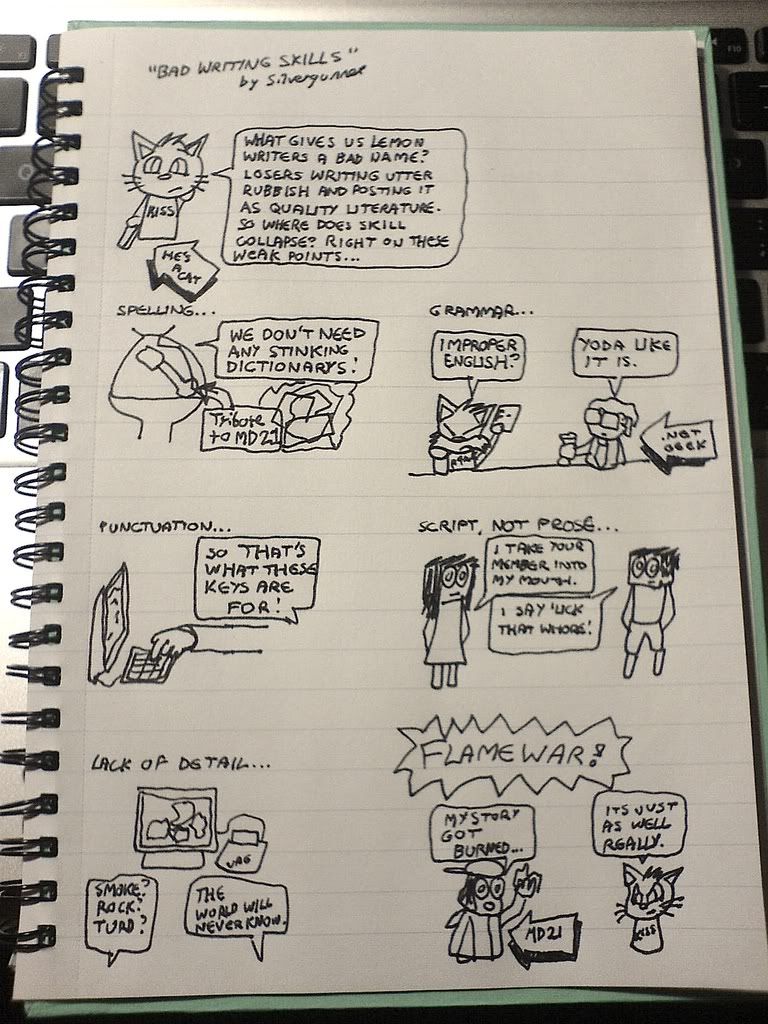 "BAD WRITING SKILLS"
by Silvergunner
WHAT GIVES US LEMON
WRITERS A BAD NAME?
LOSERS WRITING UTTER
RUBBISH AND POSTING IT
AS QUALITY LITERATURE.
SO WHERE DOES SKILL
COLLAPSE? RIGHT ON THESE
WEAK POINTS...
KISS
HE'S
A CAT
SPELLING...
WE DON'T NEED
ANY STINKING
DICTIONARYS!
Tribute
to MD21
GRAMMAR...
IMPROPER
ENGLISH?
YODA LIKE
IT IS.
.NOT
GEEK
PUNCTUATION...
SO THAT'S
WHAT THESE
KEYS ARE
FOR!
SCRIPT, NOT PROSE...
I TAKE YOUR
MEMBER INTO
MY MOUTH.
I SAY 'LICK
THAT WHORE!
LACK OF DETAIL...
SMOKE?
ROCK?
TURD?
THE
WORLD WILL
NEVER KNOW.
FLAMEWAR!
MY STORY
GOT
BURNED...
ITS JUST
AS WELL
REALLY.
MD21
KISS
F10